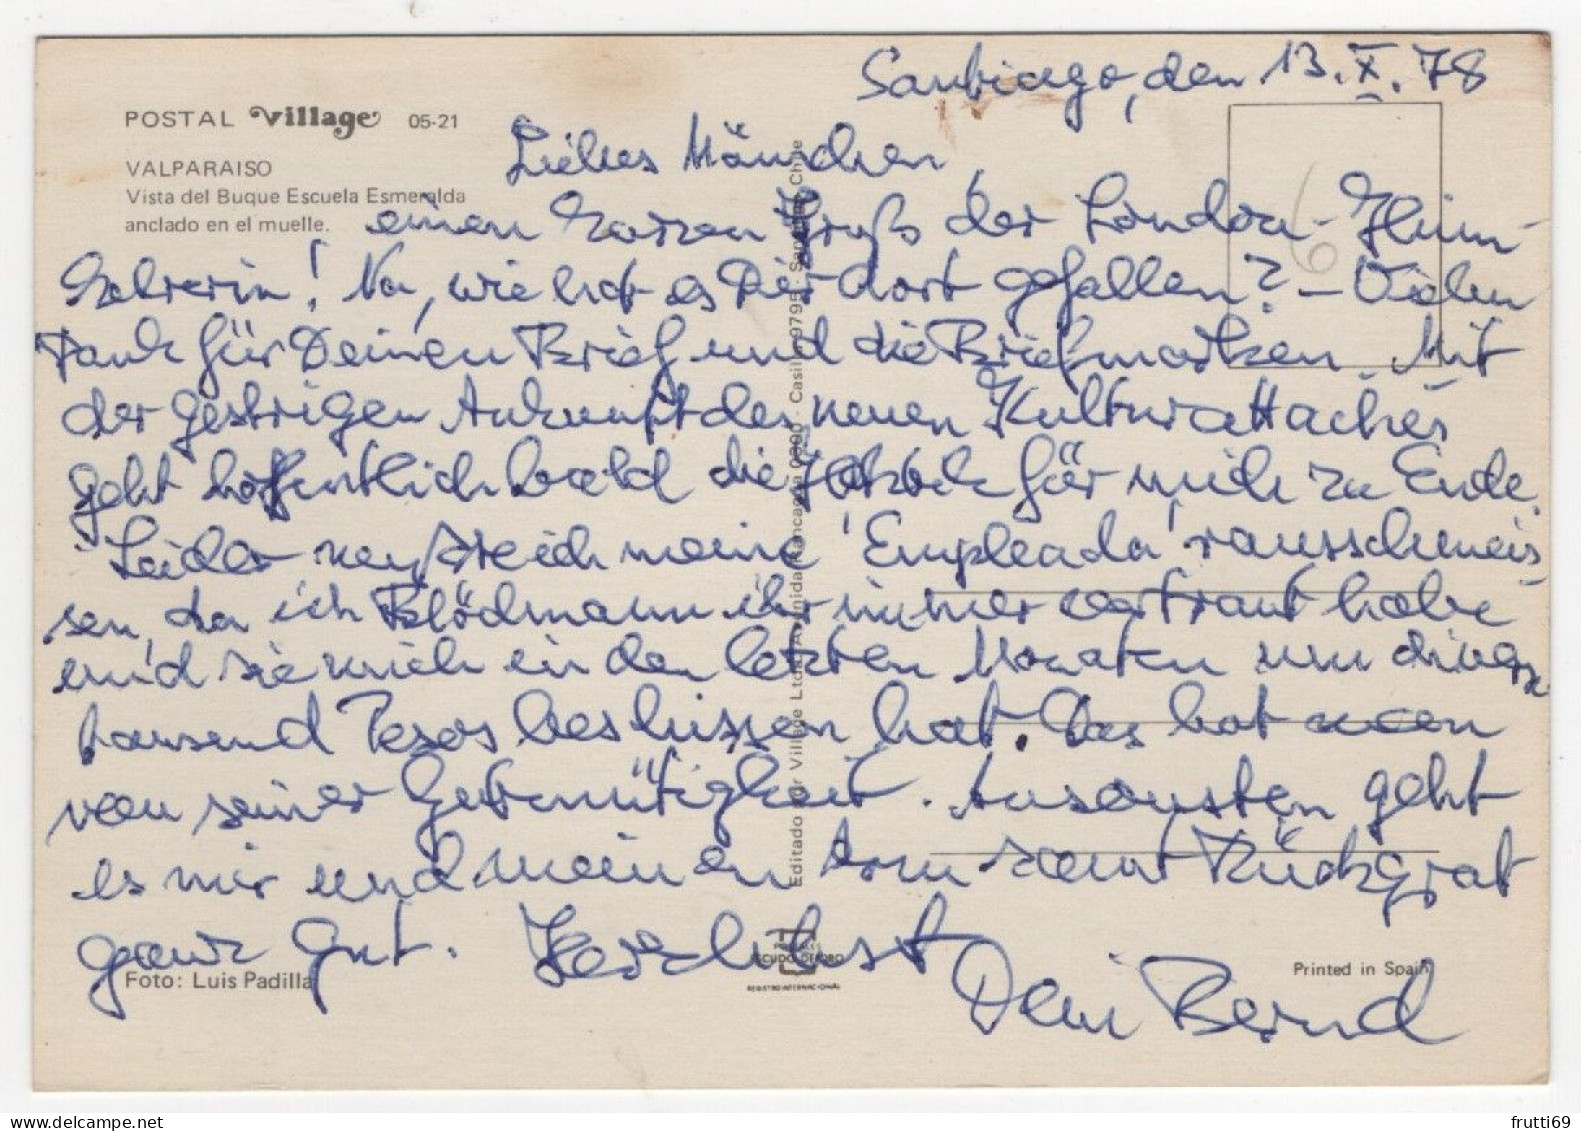 Santiago, den 13. X. 78
POSTAL Village 05-21
VALPARAISO
Vista del Buque Escuela Esmeralda
anclado en el muelle.
Liebes Mäuschen,
einen Gruß der London-Heim-
kehrerin! Na, wie hat es Dir dort gefallen? – Vielen
Dank für Deinen Brief und die Briefmarken. Mit
der gestrigen Ankunft des neuen Kulturattachés
geht hoffentlich bald die Hektik für mich zu Ende.
Leider mußte ich meine 'Empleada' rausschmeis-
sen, da ich Blödmann ihr immer vertraut habe
und sie mich in den letzten Monaten um einige
tausend Pesos beschissen hat. Das hat man
von seiner Gutmütigkeit. Ansonsten geht
es mir und meinen samt Rückgrat
ganz gut. Herzlichst
Dein Bernd
Foto: Luis Padilla
Printed in Spain
ESCUDO DE ORO
REGISTRO INTERNACIONAL
6
frutti69